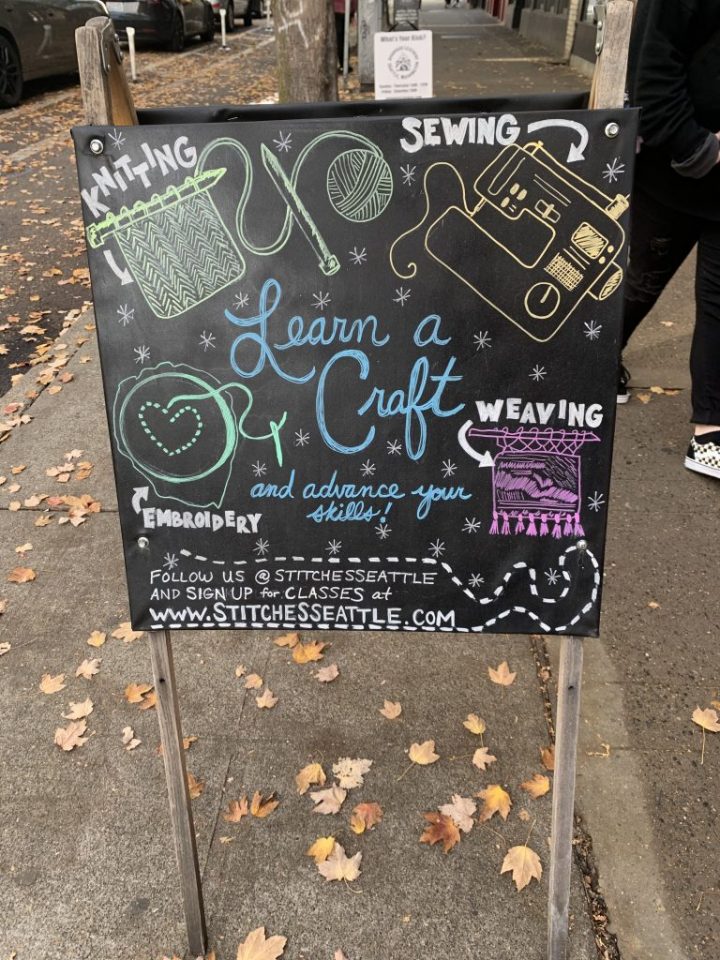 What's Your Kink?
KNITTING
SEWING
Learn a
Craft
WEAVING
and advance your
skills!
EMBROIDERY
FOLLOW US @ STITCHESSEATTLE
AND SIGN UP for CLASSES at
WWW.STITCHESSEATTLE.COM